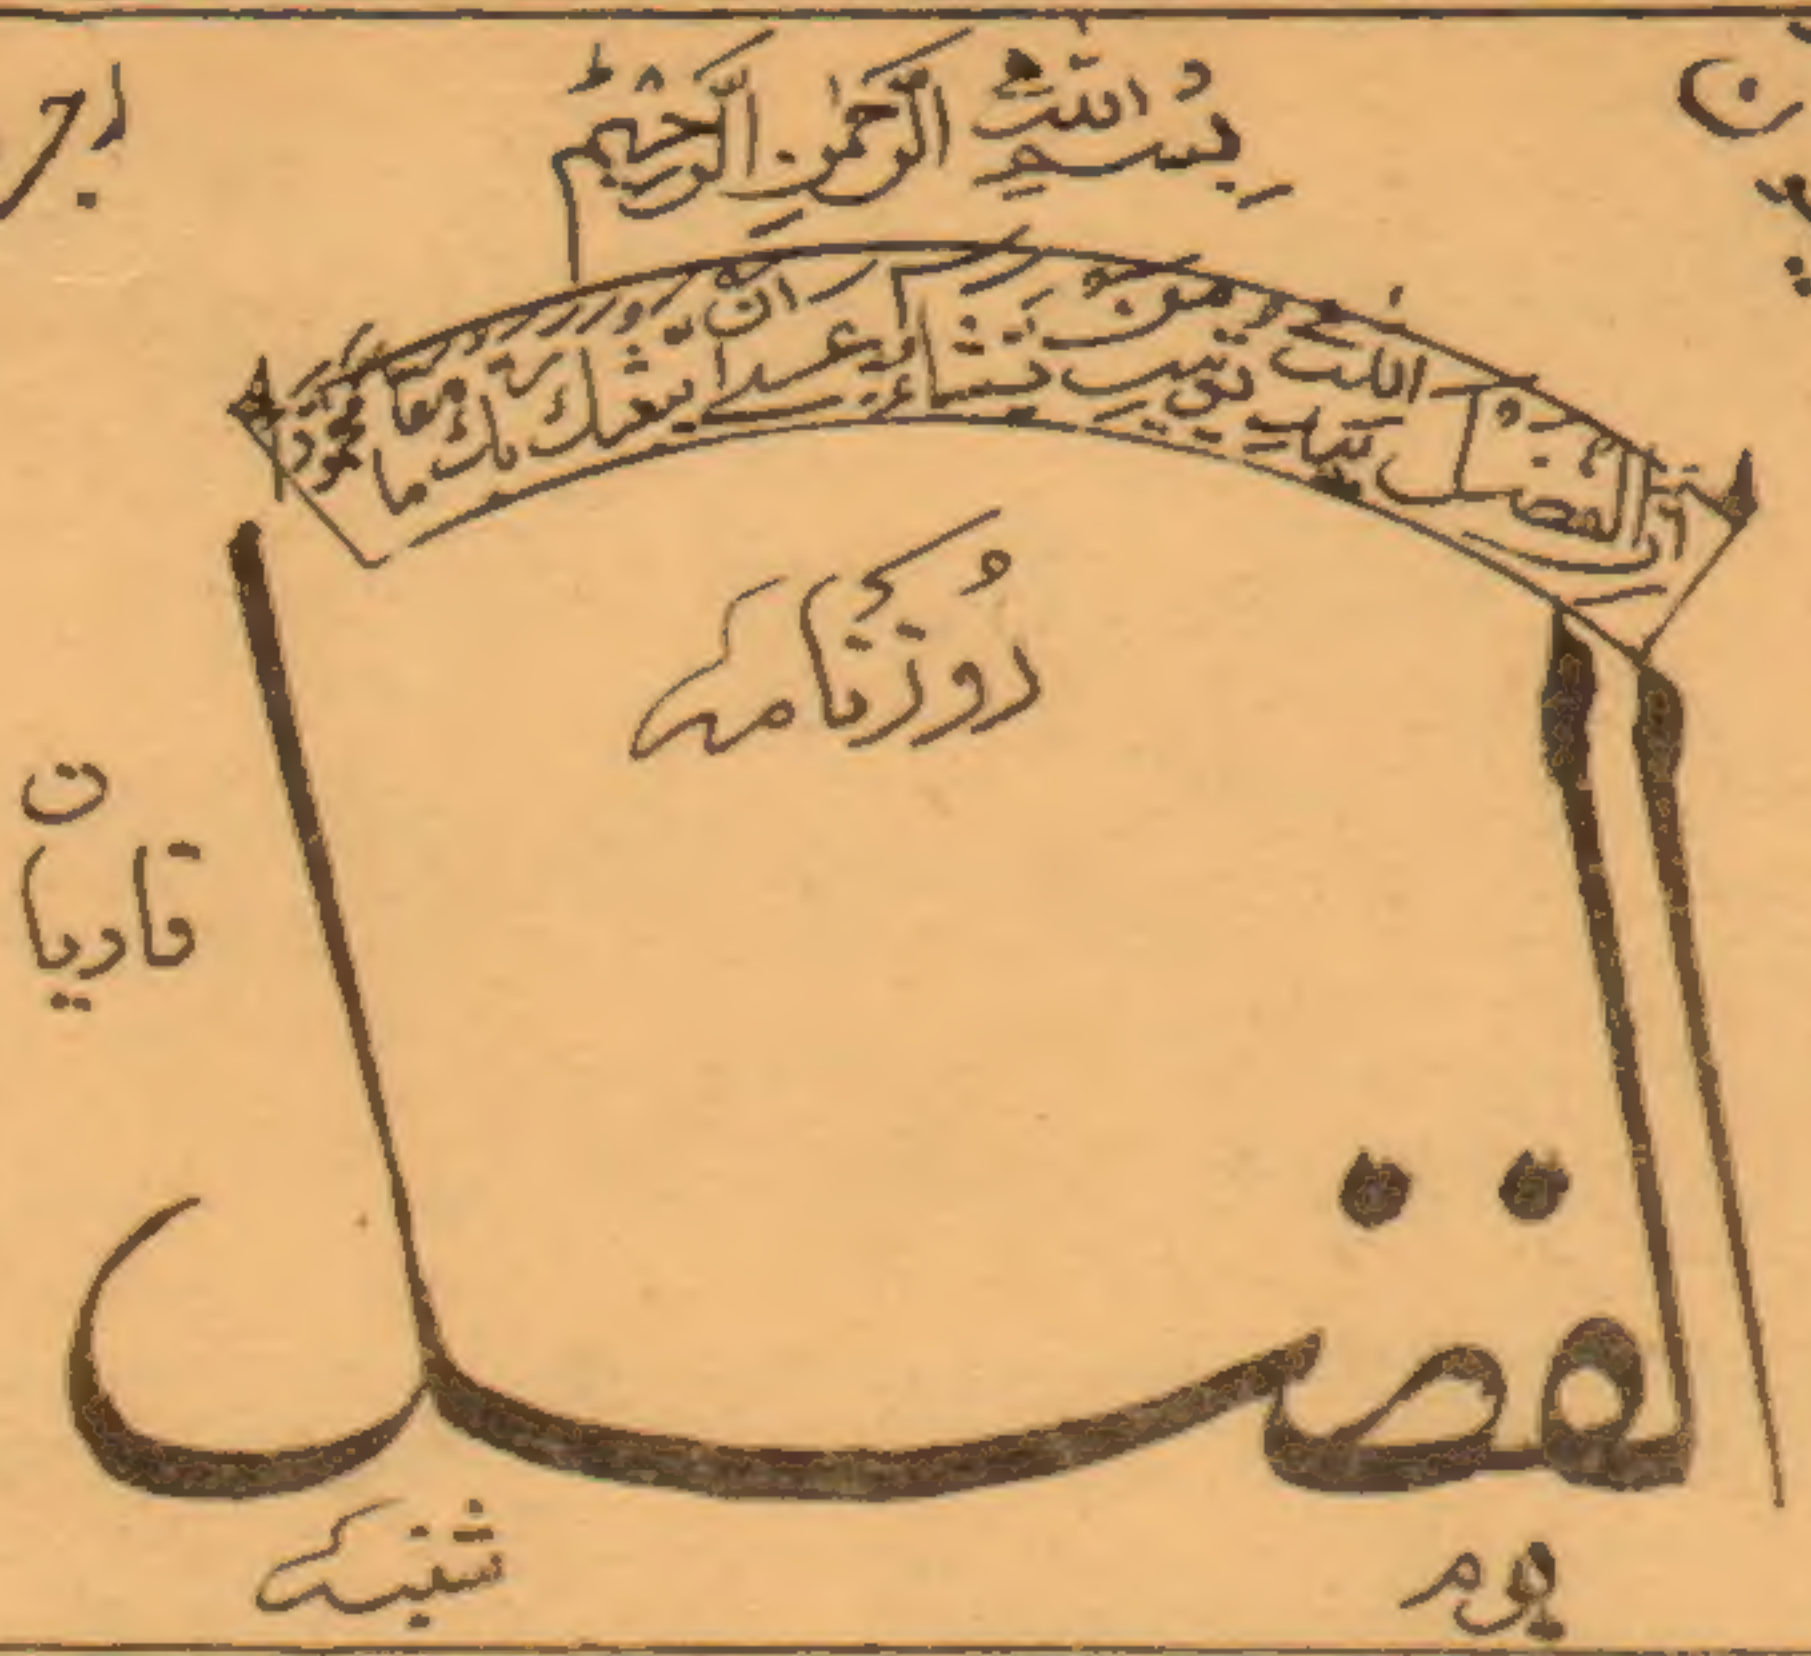 بِسْمِ اللّٰهِ الرَّحْمٰنِ الرَّحِيْمِ
اِنَّ الْفَضْلَ بِيَدِ اللّٰهِ يُؤْتِيْهِ مَنْ يَّشَآءُ عَسٰٓى اَنْ يَّبْعَثَكَ رَبُّكَ مَقَامًا مَّحْمُوْدًا
رُوزنَامہ
الفضل
قادیان
یوم
شنبہ